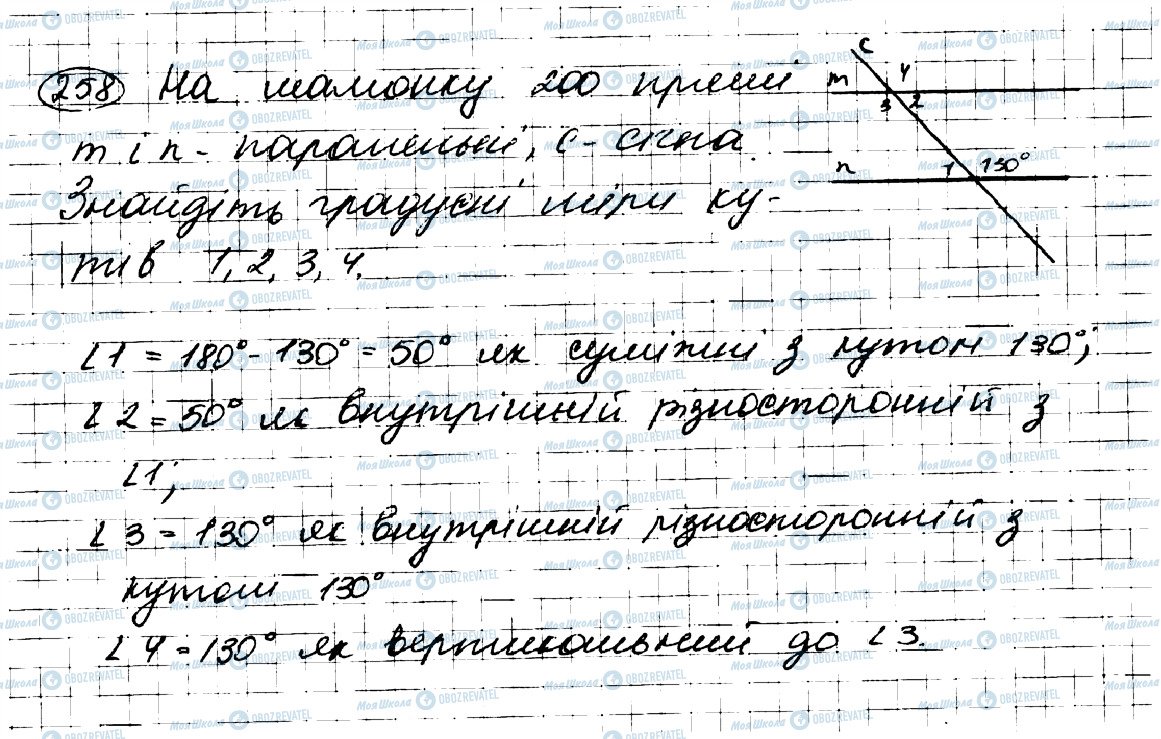 258 На малюнку 200 прямі
m і n - паралельні, c - січна.
Знайдіть градусні міри ку-
тів 1, 2, 3, 4.
c
m 4
3 2
n 1 130°
∠1 = 180° - 130° = 50° як суміжні з кутом 130°;
∠2 = 50° як внутрішній різносторонній з
∠1;
∠3 = 130° як внутрішній різносторонній з
кутом 130°
∠4 = 130° як вертикальний до ∠3.
Моя Школа OBOZREVATEL